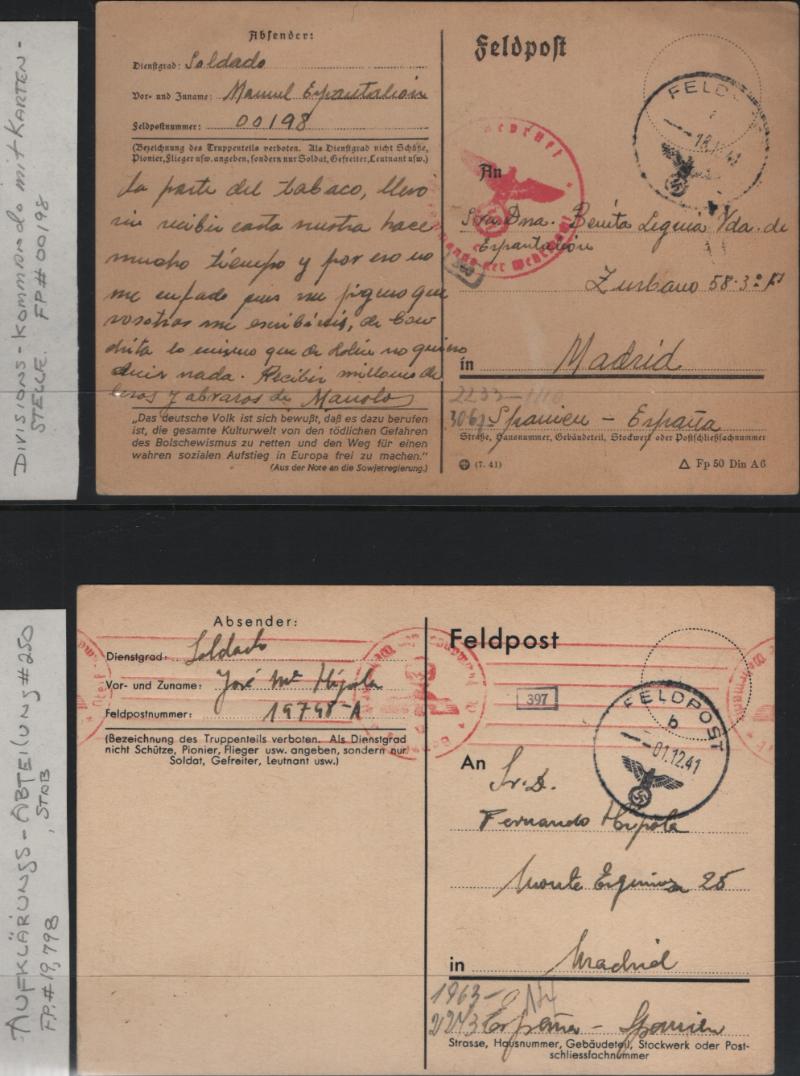 DIVISIONS-KOMMANDO MIT KARTEN-
STELLE. FP# 00198
Absender:
Dienstgrad: Soldado
Vor- und Zuname: Manuel Espantalión
Feldpostnummer: 00198
(Bezeichnung des Truppenteils verboten. Als Dienstgrad nicht Schütze,
Pionier, Flieger usw. angeben, sondern nur Soldat, Gefreiter, Leutnant usw.)
la parte del tabaco, llevo
sin recibir carta vuestra hace
mucho tiempo y por eso no
me enfado pues me figuro que
vosotros me escribiréis, de
lo mismo que de no quiero
decir nada. Recibir millones de
besos y abrazos de Manolo
„Das deutsche Volk ist sich bewußt, daß es dazu berufen
ist, die gesamte Kulturwelt von den tödlichen Gefahren
des Bolschewismus zu retten und den Weg für einen
wahren sozialen Aufstieg in Europa frei zu machen."
(Aus der Note an die Sowjetregierung.)
Feldpost
FELDP
An
Sra. Dna. Benita Leguia Vda. de
Espantalión
Zurbano 58-3º
in Madrid
2233-
3067 Spanien - España
Straße, Hausnummer, Gebäudeteil, Stockwerk oder Postschließfachnummer
(7. 41)
Fp 50 Din A 6
AUFKLÄRUNGS-ABTEILUNG #250
, STAB
FP.# 19,798
Absender:
Dienstgrad: Soldado
Vor- und Zuname: José Mª Hípola
Feldpostnummer: 19798-A
(Bezeichnung des Truppenteils verboten. Als Dienstgrad
nicht Schütze, Pionier, Flieger usw. angeben, sondern nur
Soldat, Gefreiter, Leutnant usw.)
Feldpost
397
FELDPOST
b
-01.12.41
An Sr. D.
Fernando Hípola
Monte Esquinza 25
in Madrid
1963-
2243 España - Spanien
Strasse, Hausnummer, Gebäudeteil, Stockwerk oder Post-
schliessfachnummer